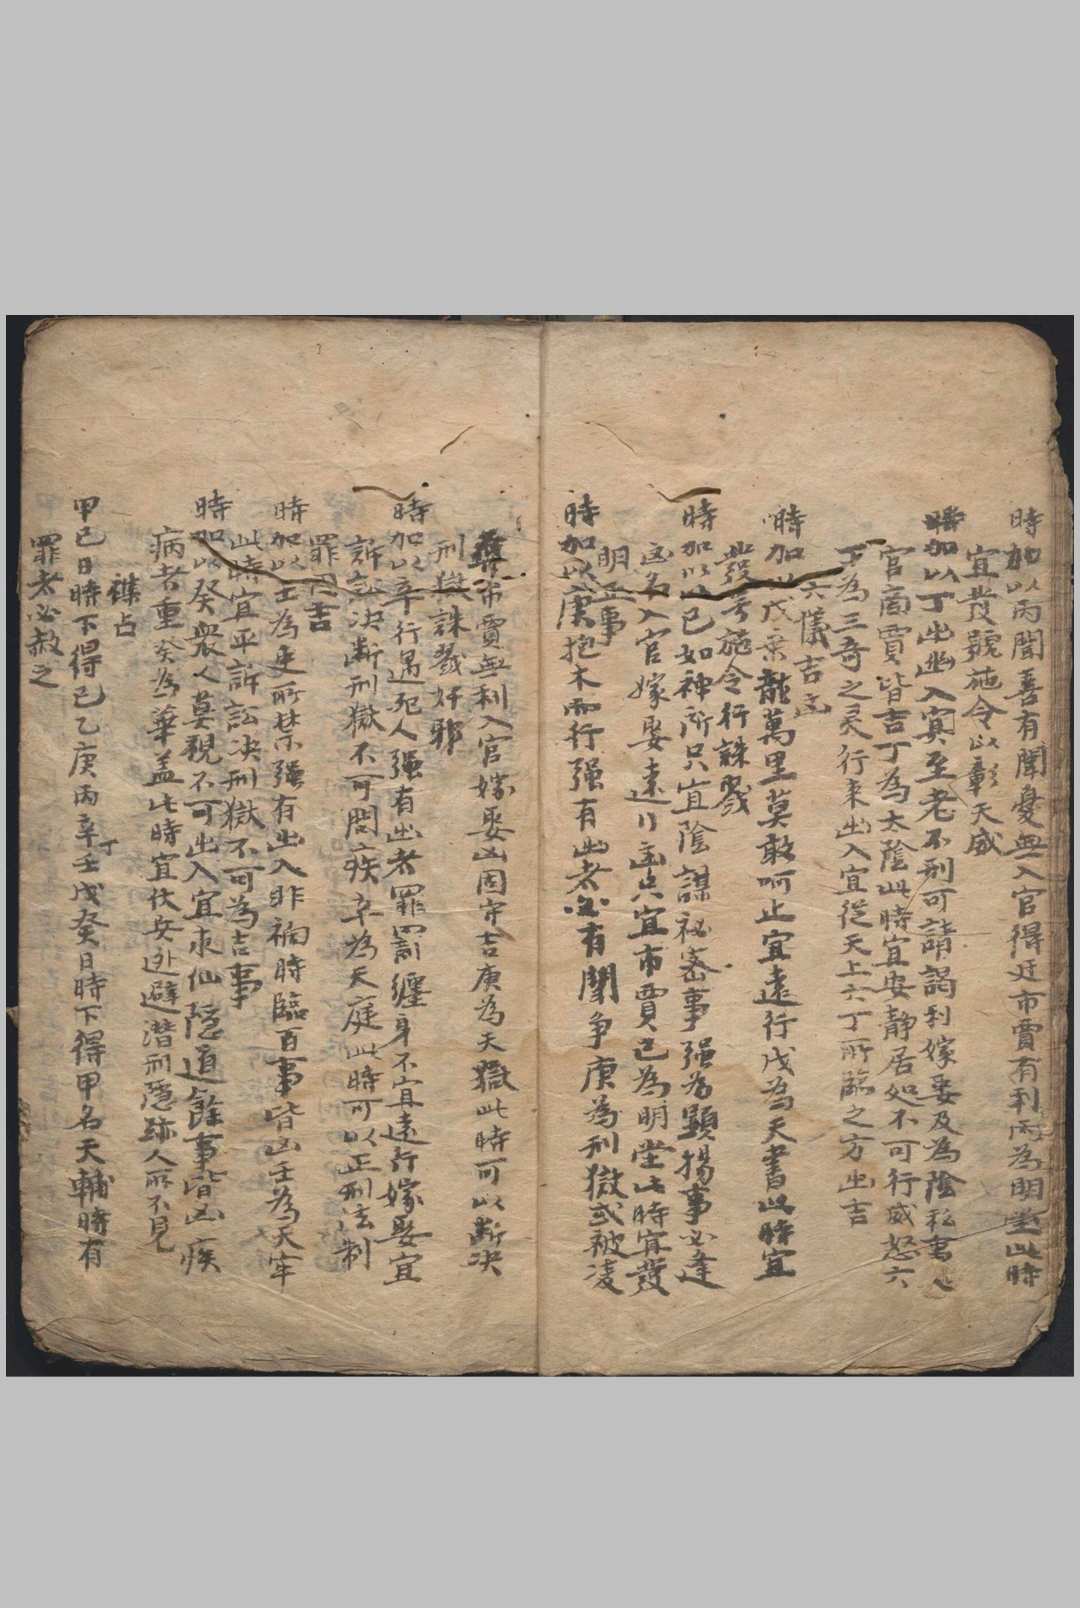 時加以丙聞喜有聞憂無入官得迁市賈有利丙為明堂此時
宜發號施令以彰天威
時加以丁出幽入冥至老不刑可請謁利嫁娶及為陰私事入
官商賈皆吉丁為太陰此時宜安静居処不可行威怒六
丁為三奇之灵行来出入宜從天上六丁所臨之方出吉
六儀吉凶
時加以戊乗龍萬里莫敢呵止宜遠行戊為天書此時宜
發号施令行誅戮
時加以己如神所只宜陰謀祕密事强為顯揚事必逢
凶名入官嫁娶遠行凶只宜市賈己為明堂此時宜發
明正事
時加以庚抱木而行强有出者必有鬪争庚為刑獄或被凌
辱市賈無利入官嫁娶凶固守吉庚為天獄此時可以断决
刑獄誅戮奸邪
時加以辛行遇死人强有出者罪罰纏身不宜遠行嫁娶宜
訴訟决断刑獄不可問疾辛為天庭此時可以正刑法制
罪囚吉
時加以壬為吏所禁强有出入非禍時臨百事皆凶壬為天牢
此時宜平訴訟决刑獄不可為吉事
時加以癸衆人莫覩不可出入宜求仙隱道餘事皆凶疾
病者重癸為華盖此時宜伏兵迯避潛刑隱跡人所不見
襍占
甲己日時下得己乙庚丙辛丁壬戊癸日時下得甲名天輔時有
罪者必赦之